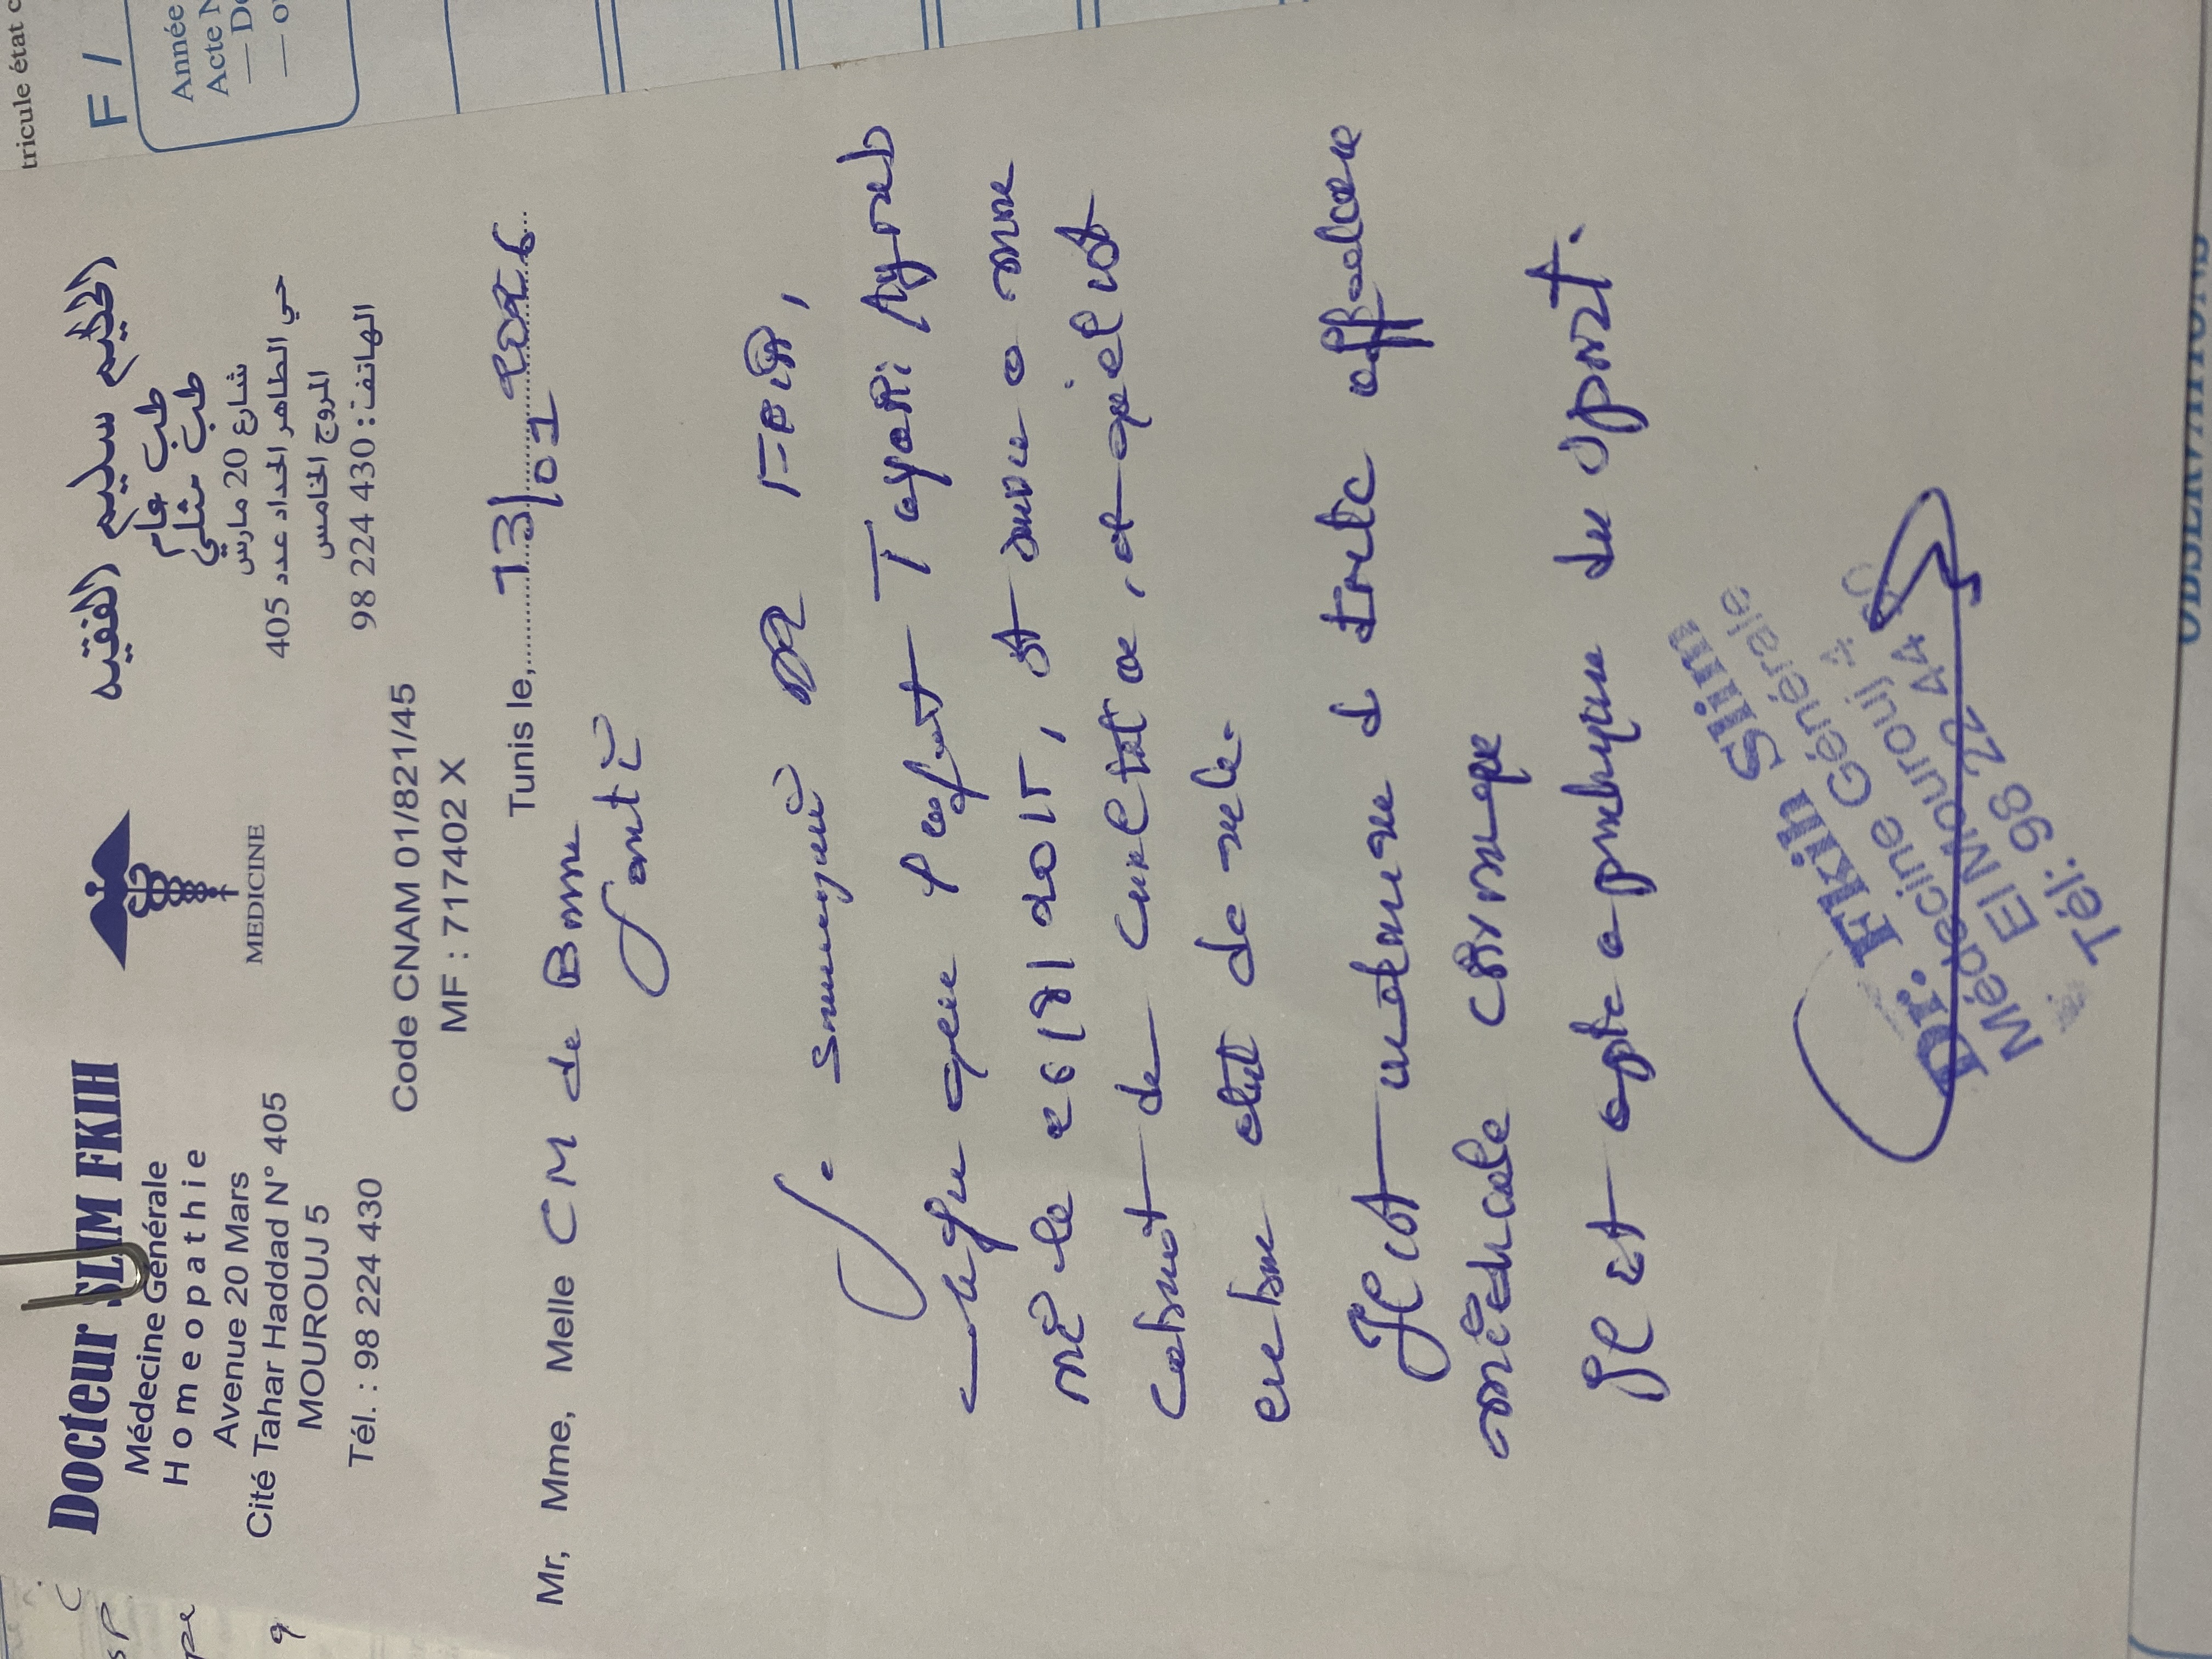 Docteur SLIM FKIH
Médecine Générale
Homeopathie
Avenue 20 Mars
Cité Tahar Haddad N° 405
MOUROUJ 5
Tél. : 98 224 430
MEDICINE
الحكيم سليم الفقيه
طب عام
طب مثلي
شارع 20 مارس
حي الطاهر الحداد عدد 405
المروج الخامس
الهاتف : 430 224 98
Code CNAM 01/821/45
MF : 717402 X
Tunis le, 13/01 2026
Mr, Mme, Melle CM de Bonne
Santé
Je soussigné Dr Fkih,
que l'enfant Tayari Ayoub
né le 26/8/2015, et suivi a mon
cabinet de consultation, et qu'il est
en bon état de
Il est indemne d toute affection
médicale chronique
Il est apte a pratiquer du sport.
Dr. Fkih Slim
Médecine Générale
El Mourouj 4
Tél: 98 22 44 30
tricule état c
F /
Année
Acte N
— D
— o
OBSERVATIONS